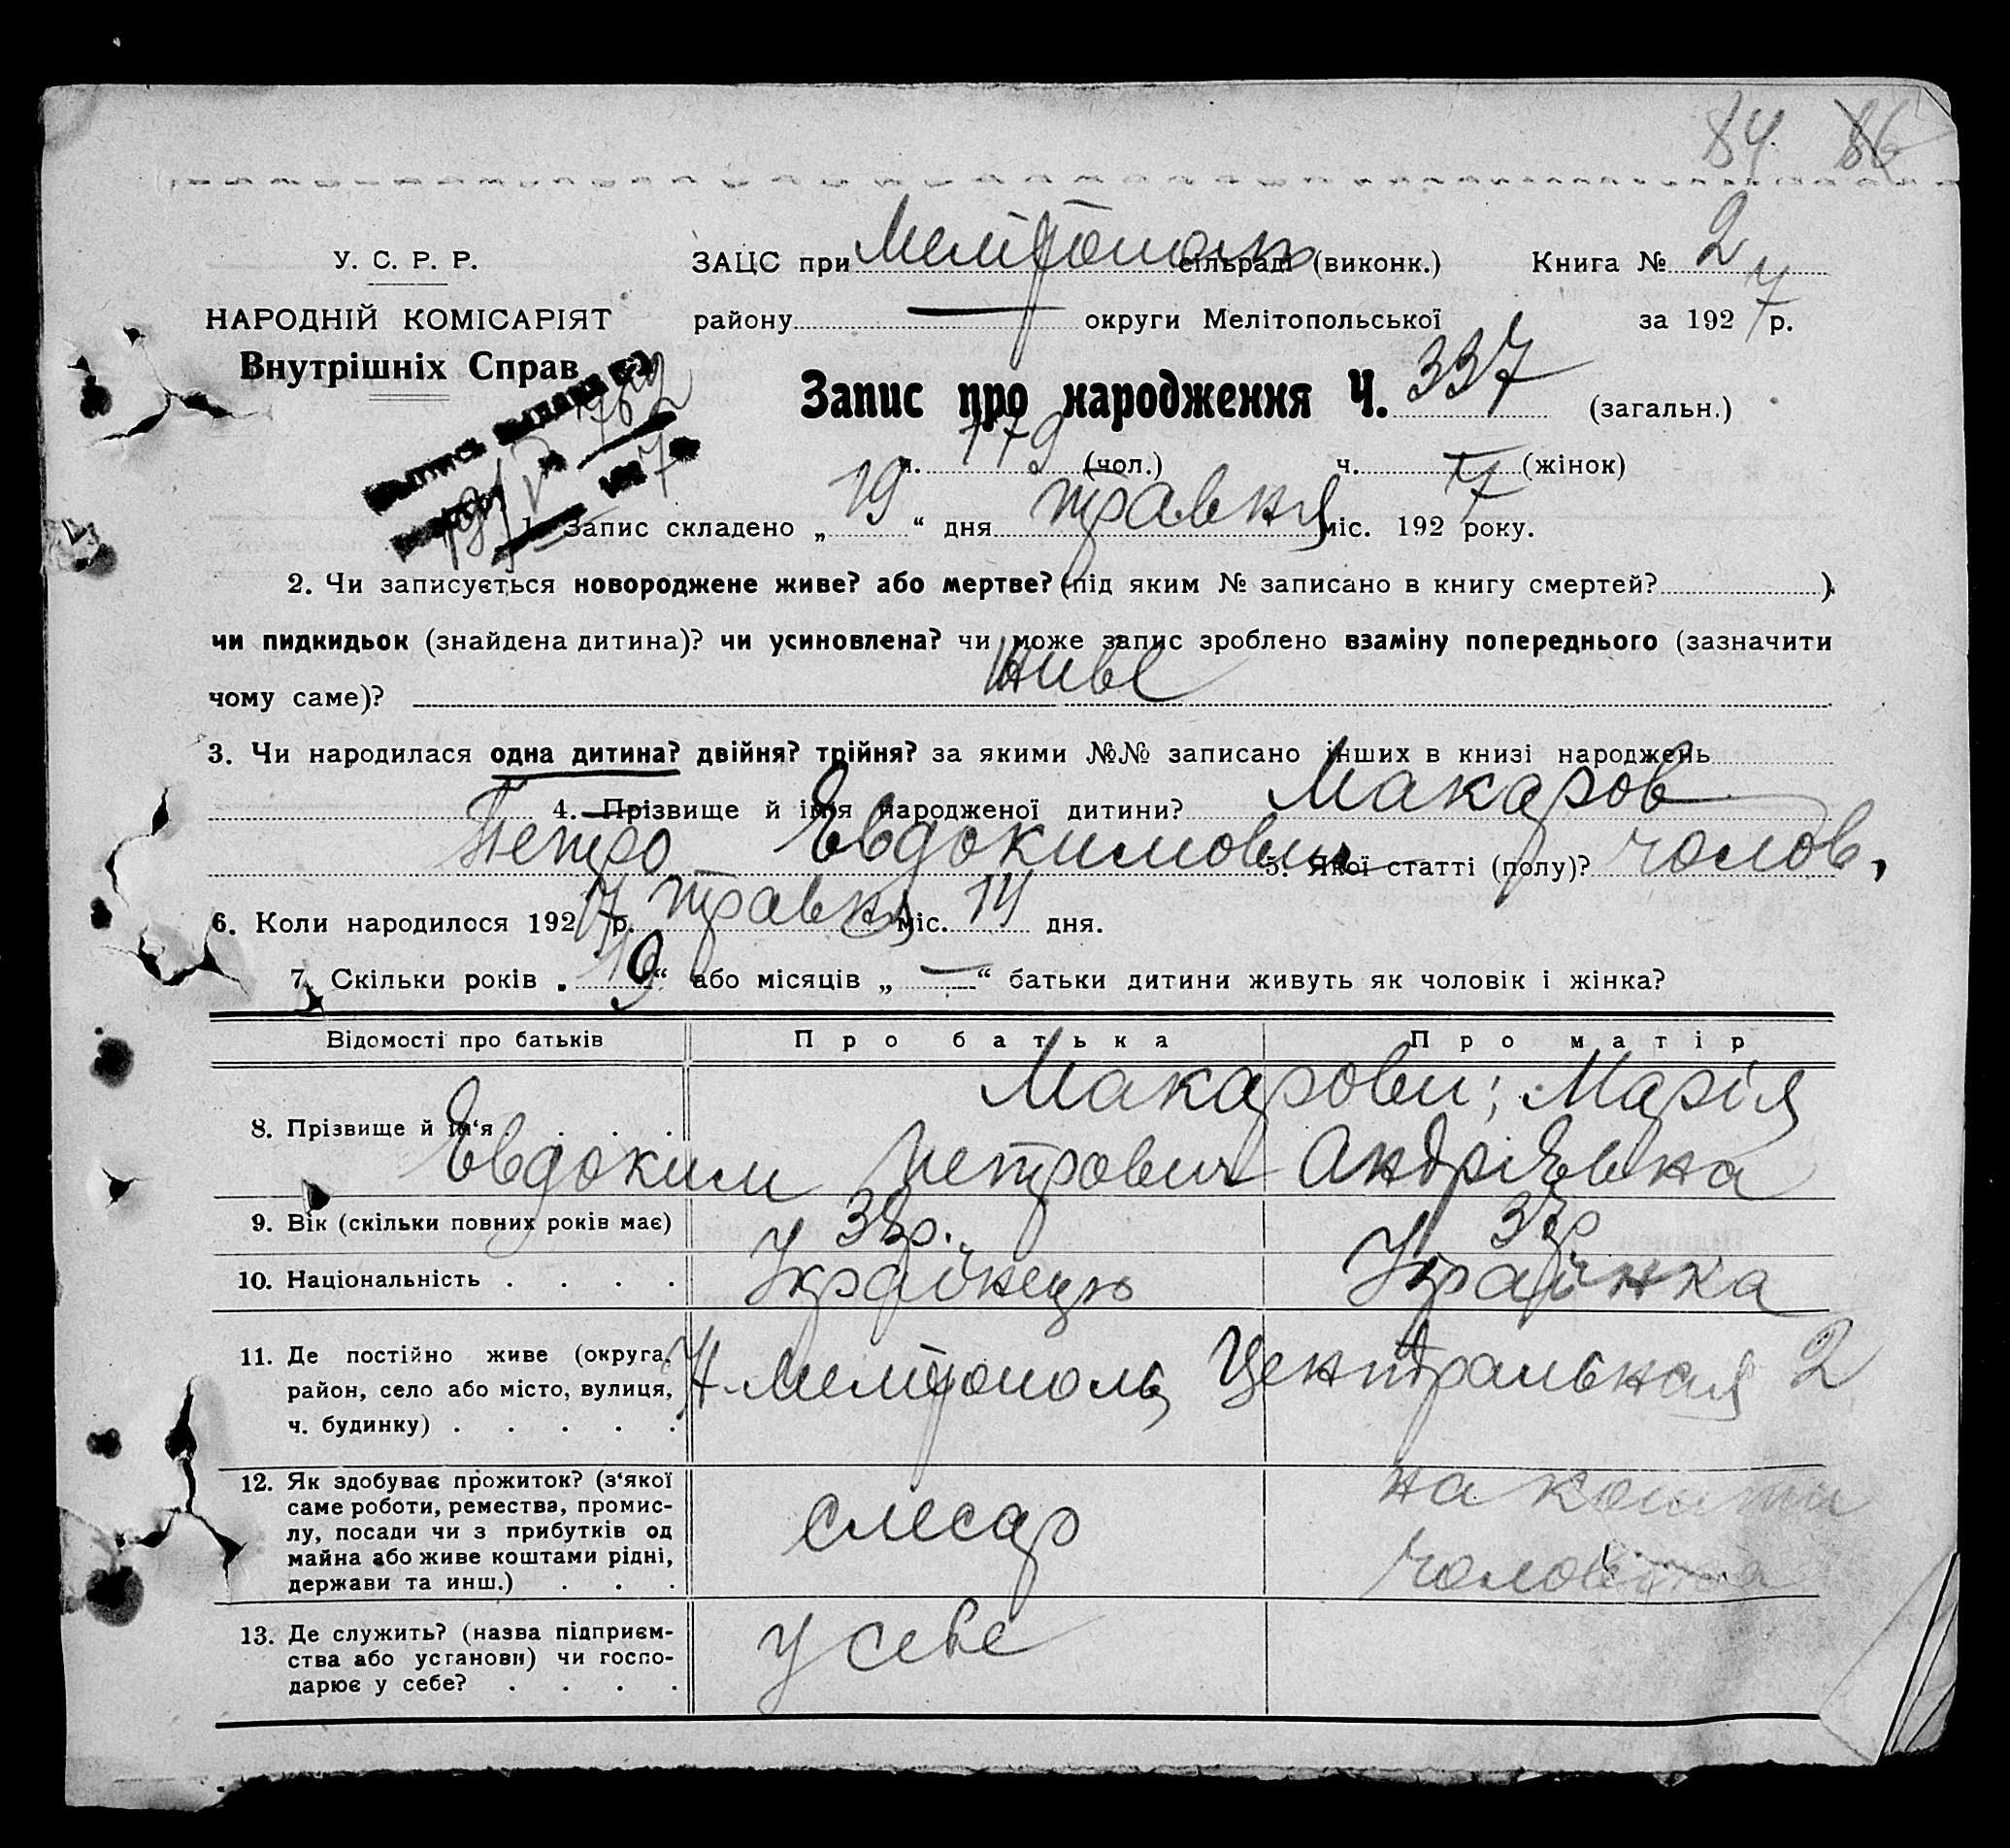 84 86
У. С. Р. Р.
НАРОДНІЙ КОМІСАРІЯТ
Внутрішніх Справ
ЗАЦС при Мелітополь сільраді (виконк.) Книга № 2
району — округи Мелітопольської за 1927 р.
Запис про народження Ч. 337 (загальн.)
ч. 179 (чол.) ч. — (жінок)
1. Запис складено „ 19 “ дня травня міс. 1927 року.
2. Чи записується новороджене живе? або мертве? (під яким № записано в книгу смертей? )
чи пидкидьок (знайдена дитина)? чи усиновлена? чи може запис зроблено взаміну попереднього (зазначити
чому саме)? Живе
3. Чи народилася одна дитина? двійня? трійня? за якими №№ записано інших в книзі народжень
4. Прізвище й ім'я народженої дитини? Макаров
Петро Евдокимович 5. Якої статті (полу)? чолов,
6. Коли народилося 1927 р. травня міс. 14 дня.
7. Скільки років „ 19 “ або місяців „ — “ батьки дитини живуть як чоловік і жінка?
Відомості про батьків Про батька Про матір
Макарови; Марія
8. Прізвище й ім'я . . . .
Евдоким Петрович Андріевна
9. Вік (скільки повних років має) 37р.
10. Національність . . . . Українець Українка
11. Де постійно живе (округа, район, село або місто, вулиця, ч. будинку) . . . . .
Н-Мелітополь, Центральная 2
12. Як здобуває прожиток? (з'якої саме роботи, ремества, промис-
лу, посади чи з прибутків од
майна або живе коштами рідні,
держави та инш.) . . .
слесар
на кошти
чоловіка
13. Де служить? (назва підприєм-
ства або установи) чи госпо-
дарює у себе? . . . .
у себе